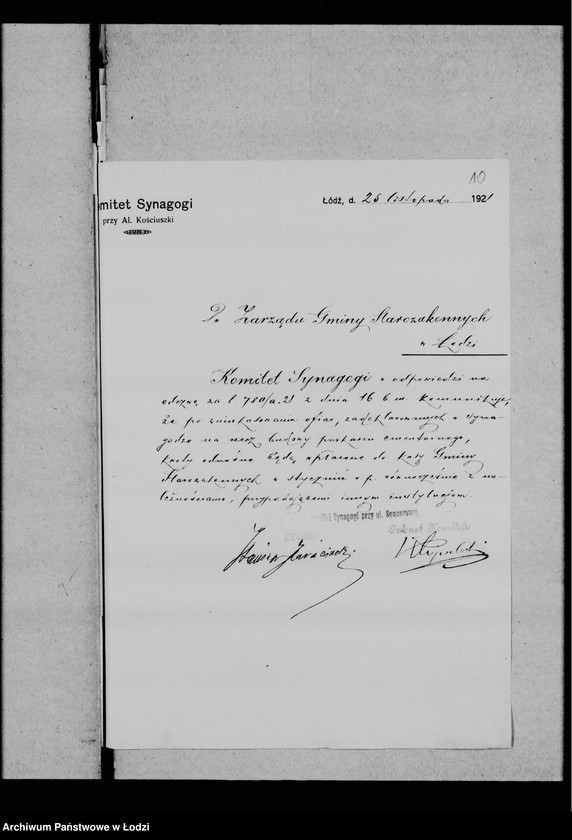 10
mitet Synagogi
przy Al. Kościuszki
Łódź, d. 25 listopada 1921
Do Zarządu Gminy Starozakonnych
w Łodzi
Komitet Synagogi w odpowiedzi na
odezwę za l 780/a. 21 z dnia 16 b. m. komunikuje,
że po zainkasowaniu ofiar, zadeklarowanych w Syna-
godze na rzecz budowy parkanu cmentarnego,
kwoty odnośne będą wpłacone do kasy Gminy
Starozakonnych w styczniu r. p. równocześnie z na-
leżnościami, przypadającemi innym instytucjom.
Synagogi przy ul. Spacerowej
Członek Komitetu
Archiwum Państwowe w Łodzi